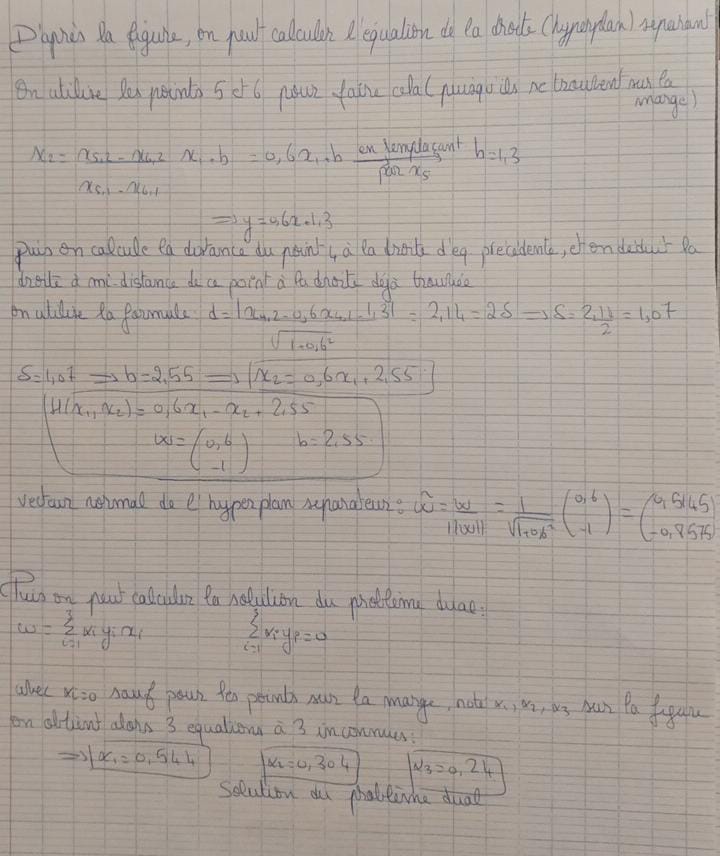 D'après la figure, on peut calculer l'équation de la droite (hyperplan) séparant
On utilise les points 5 et 6 pour faire cela (puisqu'ils se trouvent sur la marge)
x₂ = (x₅,₂ - x₆,₂)/(x₅,₁ - x₆,₁) x₁ + b = 0,6x₁ + b en remplaçant par x₅ b=1,3
⟹ y = 0,6x+1,3
Puis on calcule la distance du point 4 à la droite d'eq precedente, et on deduit la
droite à mi-distance de ce point à la droite déjà trouvée
on utilise la formule: d = |x₄,₂ - 0,6x₄,₁ - 1,3|/√(1+0,6²) = 2,14 = 2δ ⟹ δ = 2,14/2 = 1,07
δ = 1,07 ⟹ b = 2,55 ⟹ x₂ = 0,6x₁ + 2,55
H(x₁, x₂) = 0,6x₁ - x₂ + 2,55
w = (0,6 -1) b = 2,55
vecteur normal de l'hyperplan separateur: ŵ = w/||w|| = 1/√(1+0,6²) (0,6 -1) = (0,5145 -0,8575)
Puis on peut calculer la solution du problème dual:
w = Σ³ᵢ₌₁ αᵢ yᵢ xᵢ Σ³ᵢ₌₁ αᵢ yᵢ = 0
avec αᵢ=0 sauf pour les points sur la marge, noté α₁, α₂, α₃ sur la figure
on obtient alors 3 equations à 3 inconnues:
⟹ α₁ = 0,544 α₂ = 0,304 α₃ = 0,24
Solution du problème dual